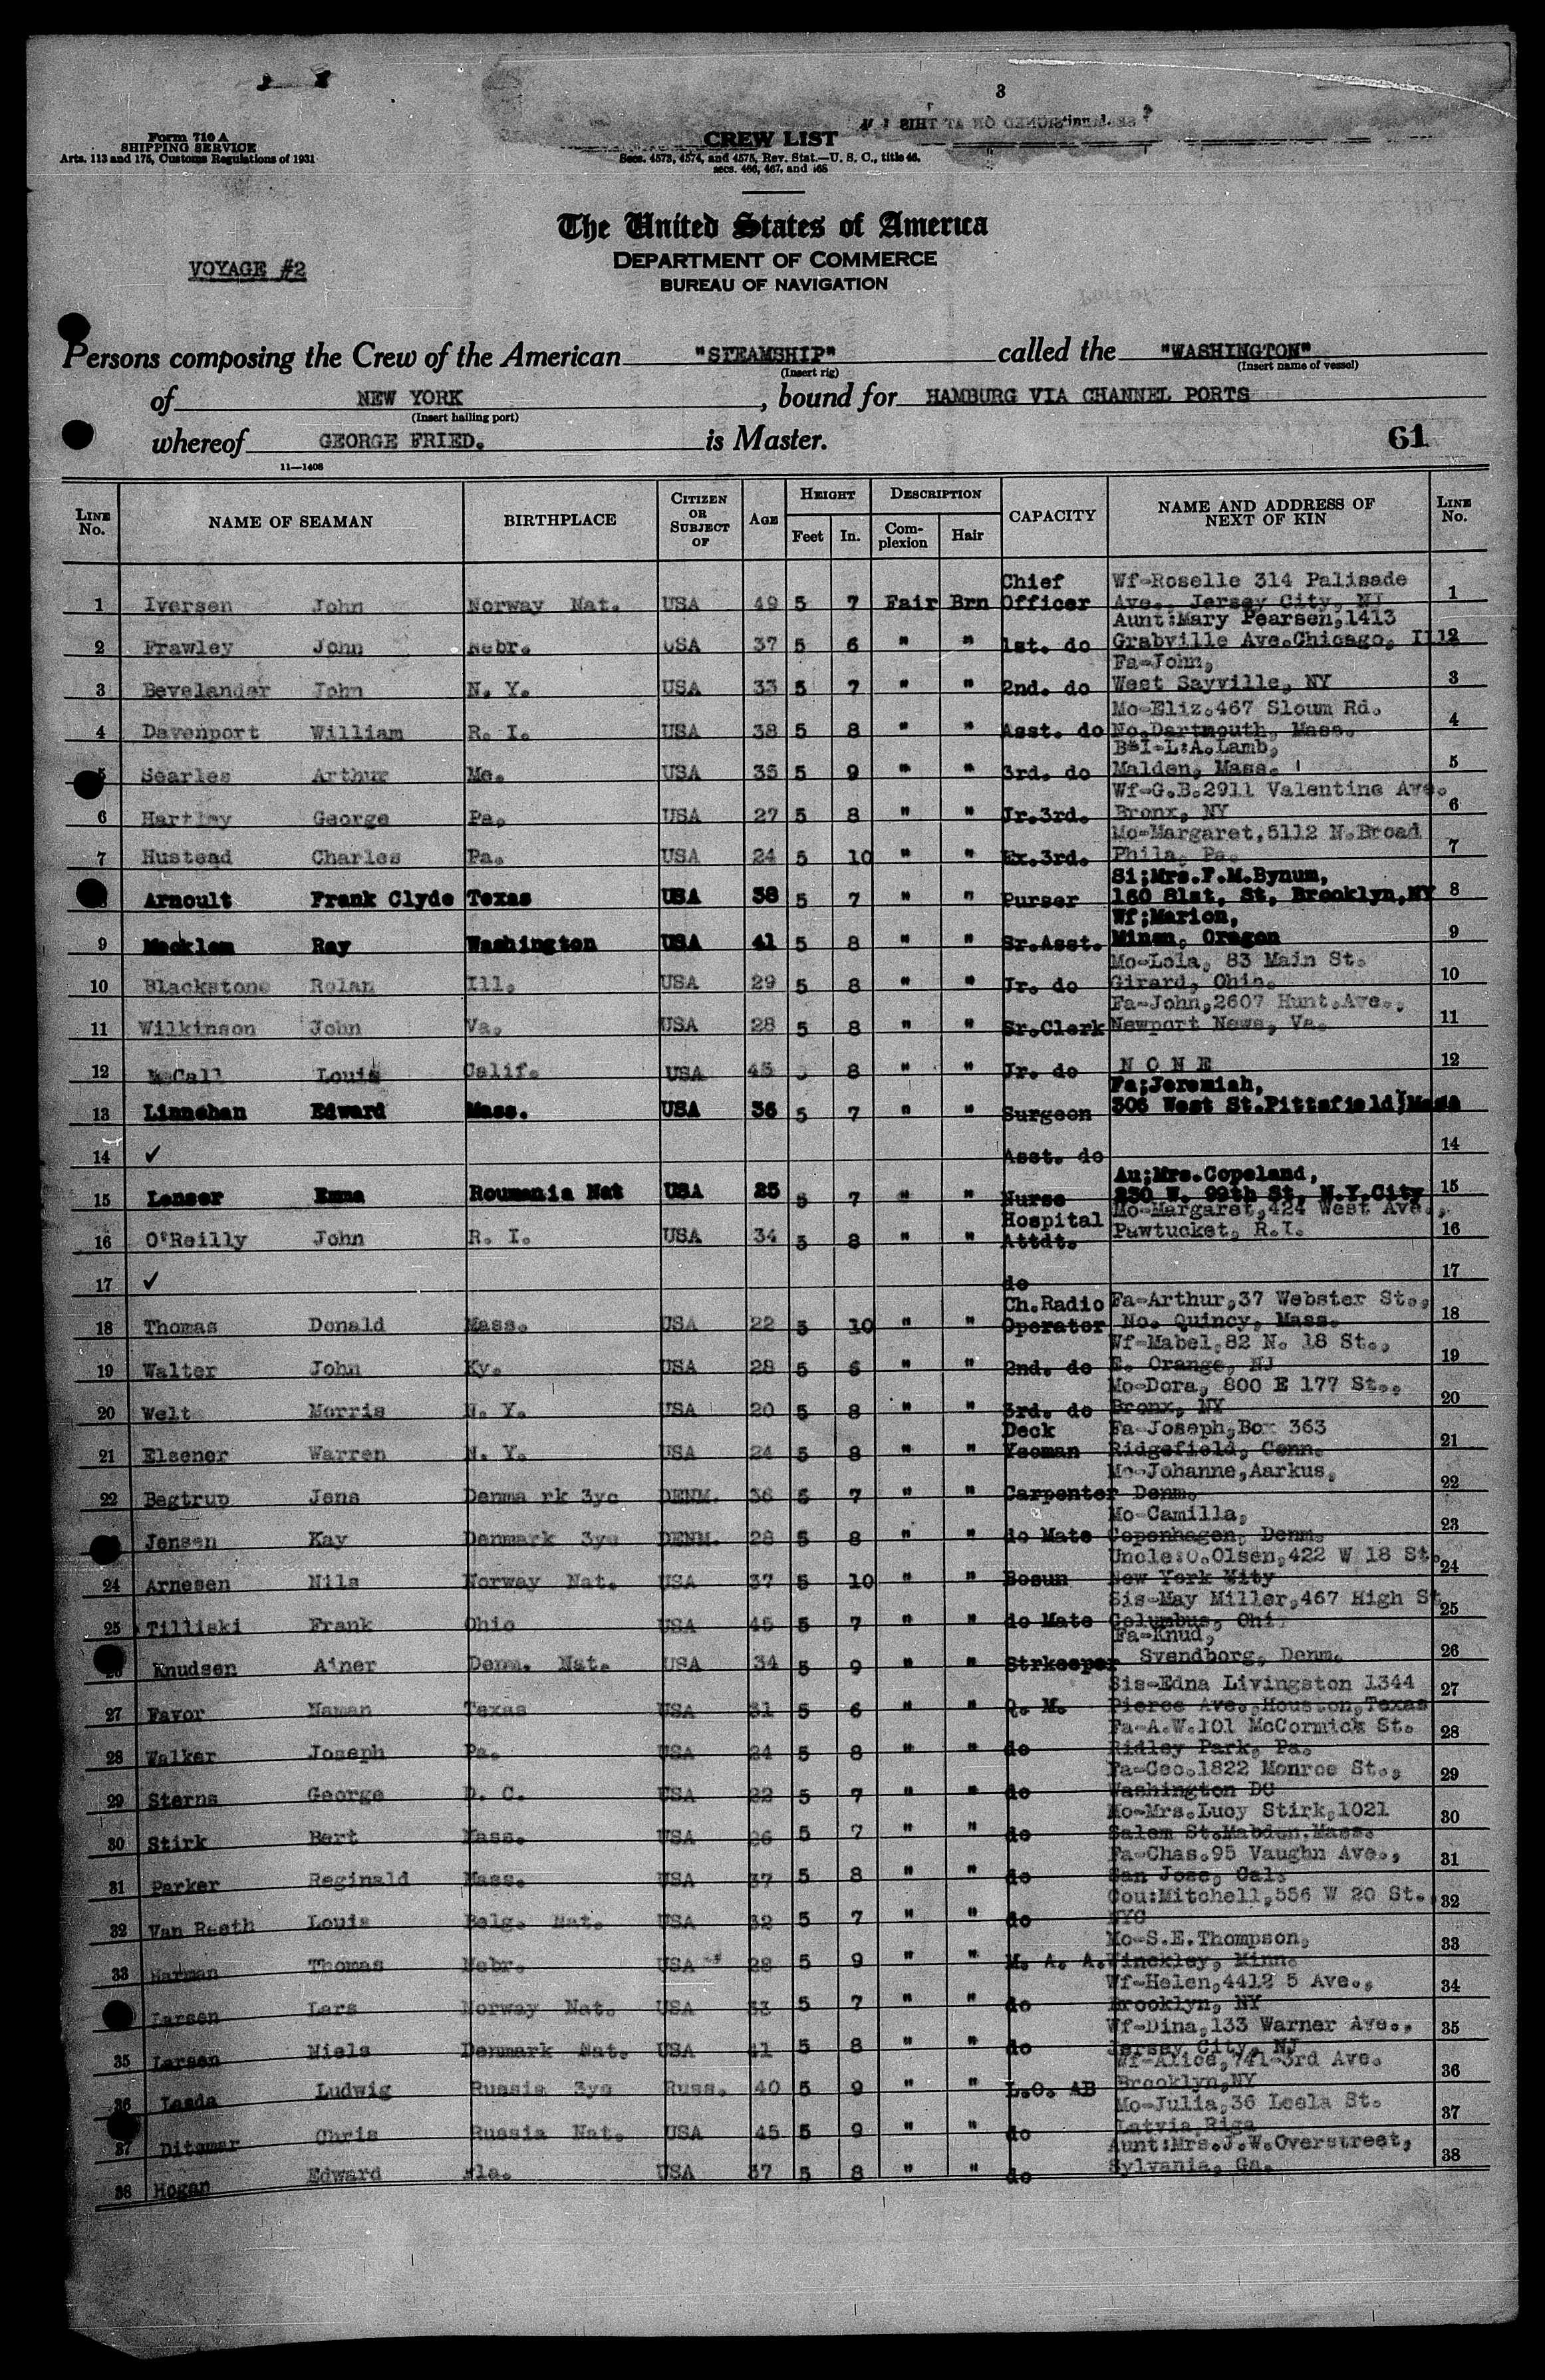 3
Form 710 A
SHIPPING SERVICE
Arts. 113 and 175, Customs Regulations of 1931
CREW LIST
Secs. 4573, 4574, and 4575, Rev. Stat.—U. S. C., title 46,
secs. 466, 467, and 468
The United States of America
DEPARTMENT OF COMMERCE
BUREAU OF NAVIGATION
VOYAGE #2
Persons composing the Crew of the American "STEAMSHIP" called the "WASHINGTON"
(Insert rig) (Insert name of vessel)
of NEW YORK, bound for HAMBURG VIA CHANNEL PORTS
(Insert hailing port)
whereof GEORGE FRIED. is Master. 61
11—1408
LINE No. NAME OF SEAMAN BIRTHPLACE CITIZEN OR SUBJECT OF AGE HEIGHT Feet In. DESCRIPTION Complexion Hair CAPACITY NAME AND ADDRESS OF NEXT OF KIN LINE No.
1 Iversen John Norway Nat. USA 49 5 7 Fair Brn Chief Officer Wf-Roselle 314 Palisade Ave., Jersey City, NJ 1
2 Frawley John Nebr. USA 37 5 6 " " 1st. do Aunt:Mary Pearsen,1413 Grabville Ave.Chicago, Ill 2
3 Bevelander John N. Y. USA 33 5 7 " " 2nd. do Fa-John, West Sayville, NY 3
4 Davenport William R. I. USA 38 5 8 " " Asst. do Mo-Eliz.467 Sloum Rd. No.Dartmouth, Mass. 4
5 Searles Arthur Me. USA 35 5 9 " " 3rd. do B-I-L:A.Lamb, Malden, Mass. 5
6 Hartley George Pa. USA 27 5 8 " " Jr.3rd. Wf-G.B.2911 Valentine Ave. Bronx, NY 6
7 Hustead Charles Pa. USA 24 5 10 " " Ex.3rd. Mo-Margaret,5112 N.Broad Phila, Pa. 7
Arnoult Frank Clyde Texas USA 38 5 7 " " Purser Si;Mrs.F.M.Bynum, 160 81st, St, Brooklyn,NY 8
9 Macklem Ray Washington USA 41 5 8 " " Sr.Asst. Wf;Marion, Minam, Oregon 9
10 Blackstone Rolan Ill. USA 29 5 8 " " Jr. do Mo-Lola, 83 Main St. Girard, Ohio. 10
11 Wilkinson John Va. USA 28 5 8 " " Sr.Clerk Fa-John,2607 Hunt.Ave., Newport News, Va. 11
12 McCall Louis Calif. USA 45 5 8 " " Jr. do N O N E 12
13 Linnehan Edward Mass. USA 36 5 7 " " Surgeon Fa;Jeremiah, 306 West St.Pittsfield,Mass 13
14 ✓ Asst. do 14
15 Lenser Emma Roumania Nat USA 25 5 7 " " Nurse Au;Mrs.Copeland, 230 W. 99th St, N.Y.City 15
16 O'Reilly John R. I. USA 34 5 8 " " Hospital Attdt. Mo-Margaret,424 West Ave., Pawtucket, R.I. 16
17 ✓ do 17
18 Thomas Donald Mass. USA 22 5 10 " " Ch.Radio Operator Fa-Arthur,37 Webster St., No. Quincy, Mass. 18
19 Walter John Ky. USA 28 5 6 " " 2nd. do Wf-Mabel,82 N. 18 St., E. Orange, NJ 19
20 Welt Morris N. Y. USA 20 5 8 " " 3rd. do Mo-Dora, 800 E 177 St., Bronx, NY 20
21 Elsener Warren N. Y. USA 24 5 8 " " Deck Yeoman Fa-Joseph,Box 363 Ridgefield, Conn. 21
22 Begtrup Jens Denmark 3yo DENM. 36 5 7 " " Carpenter Mo-Johanne,Aarkus, Denm. 22
Jensen Kay Denmark 3ys DENM. 28 5 8 " " do Mate Mo-Camilla, Copenhagen, Denm. 23
24 Arnesen Nils Norway Nat. USA 37 5 10 " " Bosun Uncle:O.Olsen,422 W 18 St. New York Wity 24
25 Tilliski Frank Ohio USA 45 5 7 " " do Mate Sis-May Miller,467 High St Columbus, Ohi 25
Knudsen Ainer Denm. Nat. USA 34 5 9 " " Strkeeper Fa-Knud, Svendborg, Denm. 26
27 Favor Naman Texas USA 31 5 6 " " Q. M. Sis-Edna Livingston 1344 Pierce Ave.,Houston,Texas 27
28 Walker Joseph Pa. USA 24 5 8 " " do Fa-A.W.101 McCormick St. Ridley Park, Pa. 28
29 Sterns George D. C. USA 22 5 7 " " do Fa-Geo.1822 Monroe St., Washington DC 29
30 Stirk Bert Mass. USA 26 5 7 " " do Mo-Mrs.Lucy Stirk,1021 Salem St.Mabden.Mass. 30
31 Parker Reginald Mass. USA 37 5 8 " " do Fa-Chas.95 Vaughn Ave., San Jose, Cal. 31
32 Van Reeth Louis Belg. Nat. USA 32 5 7 " " do Cou:Mitchell,556 W 20 St. NYC 32
33 Harman Thomas Nebr. USA 28 5 9 " " M. A. A. Mo-S.E.Thompson, Hinckley, Minn. 33
Larsen Lars Norway Nat. USA 33 5 7 " " do Wf-Helen,4412 5 Ave., Brooklyn, NY 34
35 Larsen Niels Denmark Nat. USA 41 5 8 " " do Wf-Dina,133 Warner Ave., Jersey City, NJ 35
36 Laada Ludwig Russia 3ys Russ. 40 5 9 " " L.O. AB Wf-Alice,741-3rd Ave. Brooklyn,NY 36
37 Ditsmar Chris Russia Nat. USA 45 5 9 " " do Mo-Julia,36 Leela St. Latvia,Riga 37
38 Hogan Edward Fla. USA 37 5 8 " " do Aunt:Mrs.J.W.Overstreet, Sylvania, Ga. 38